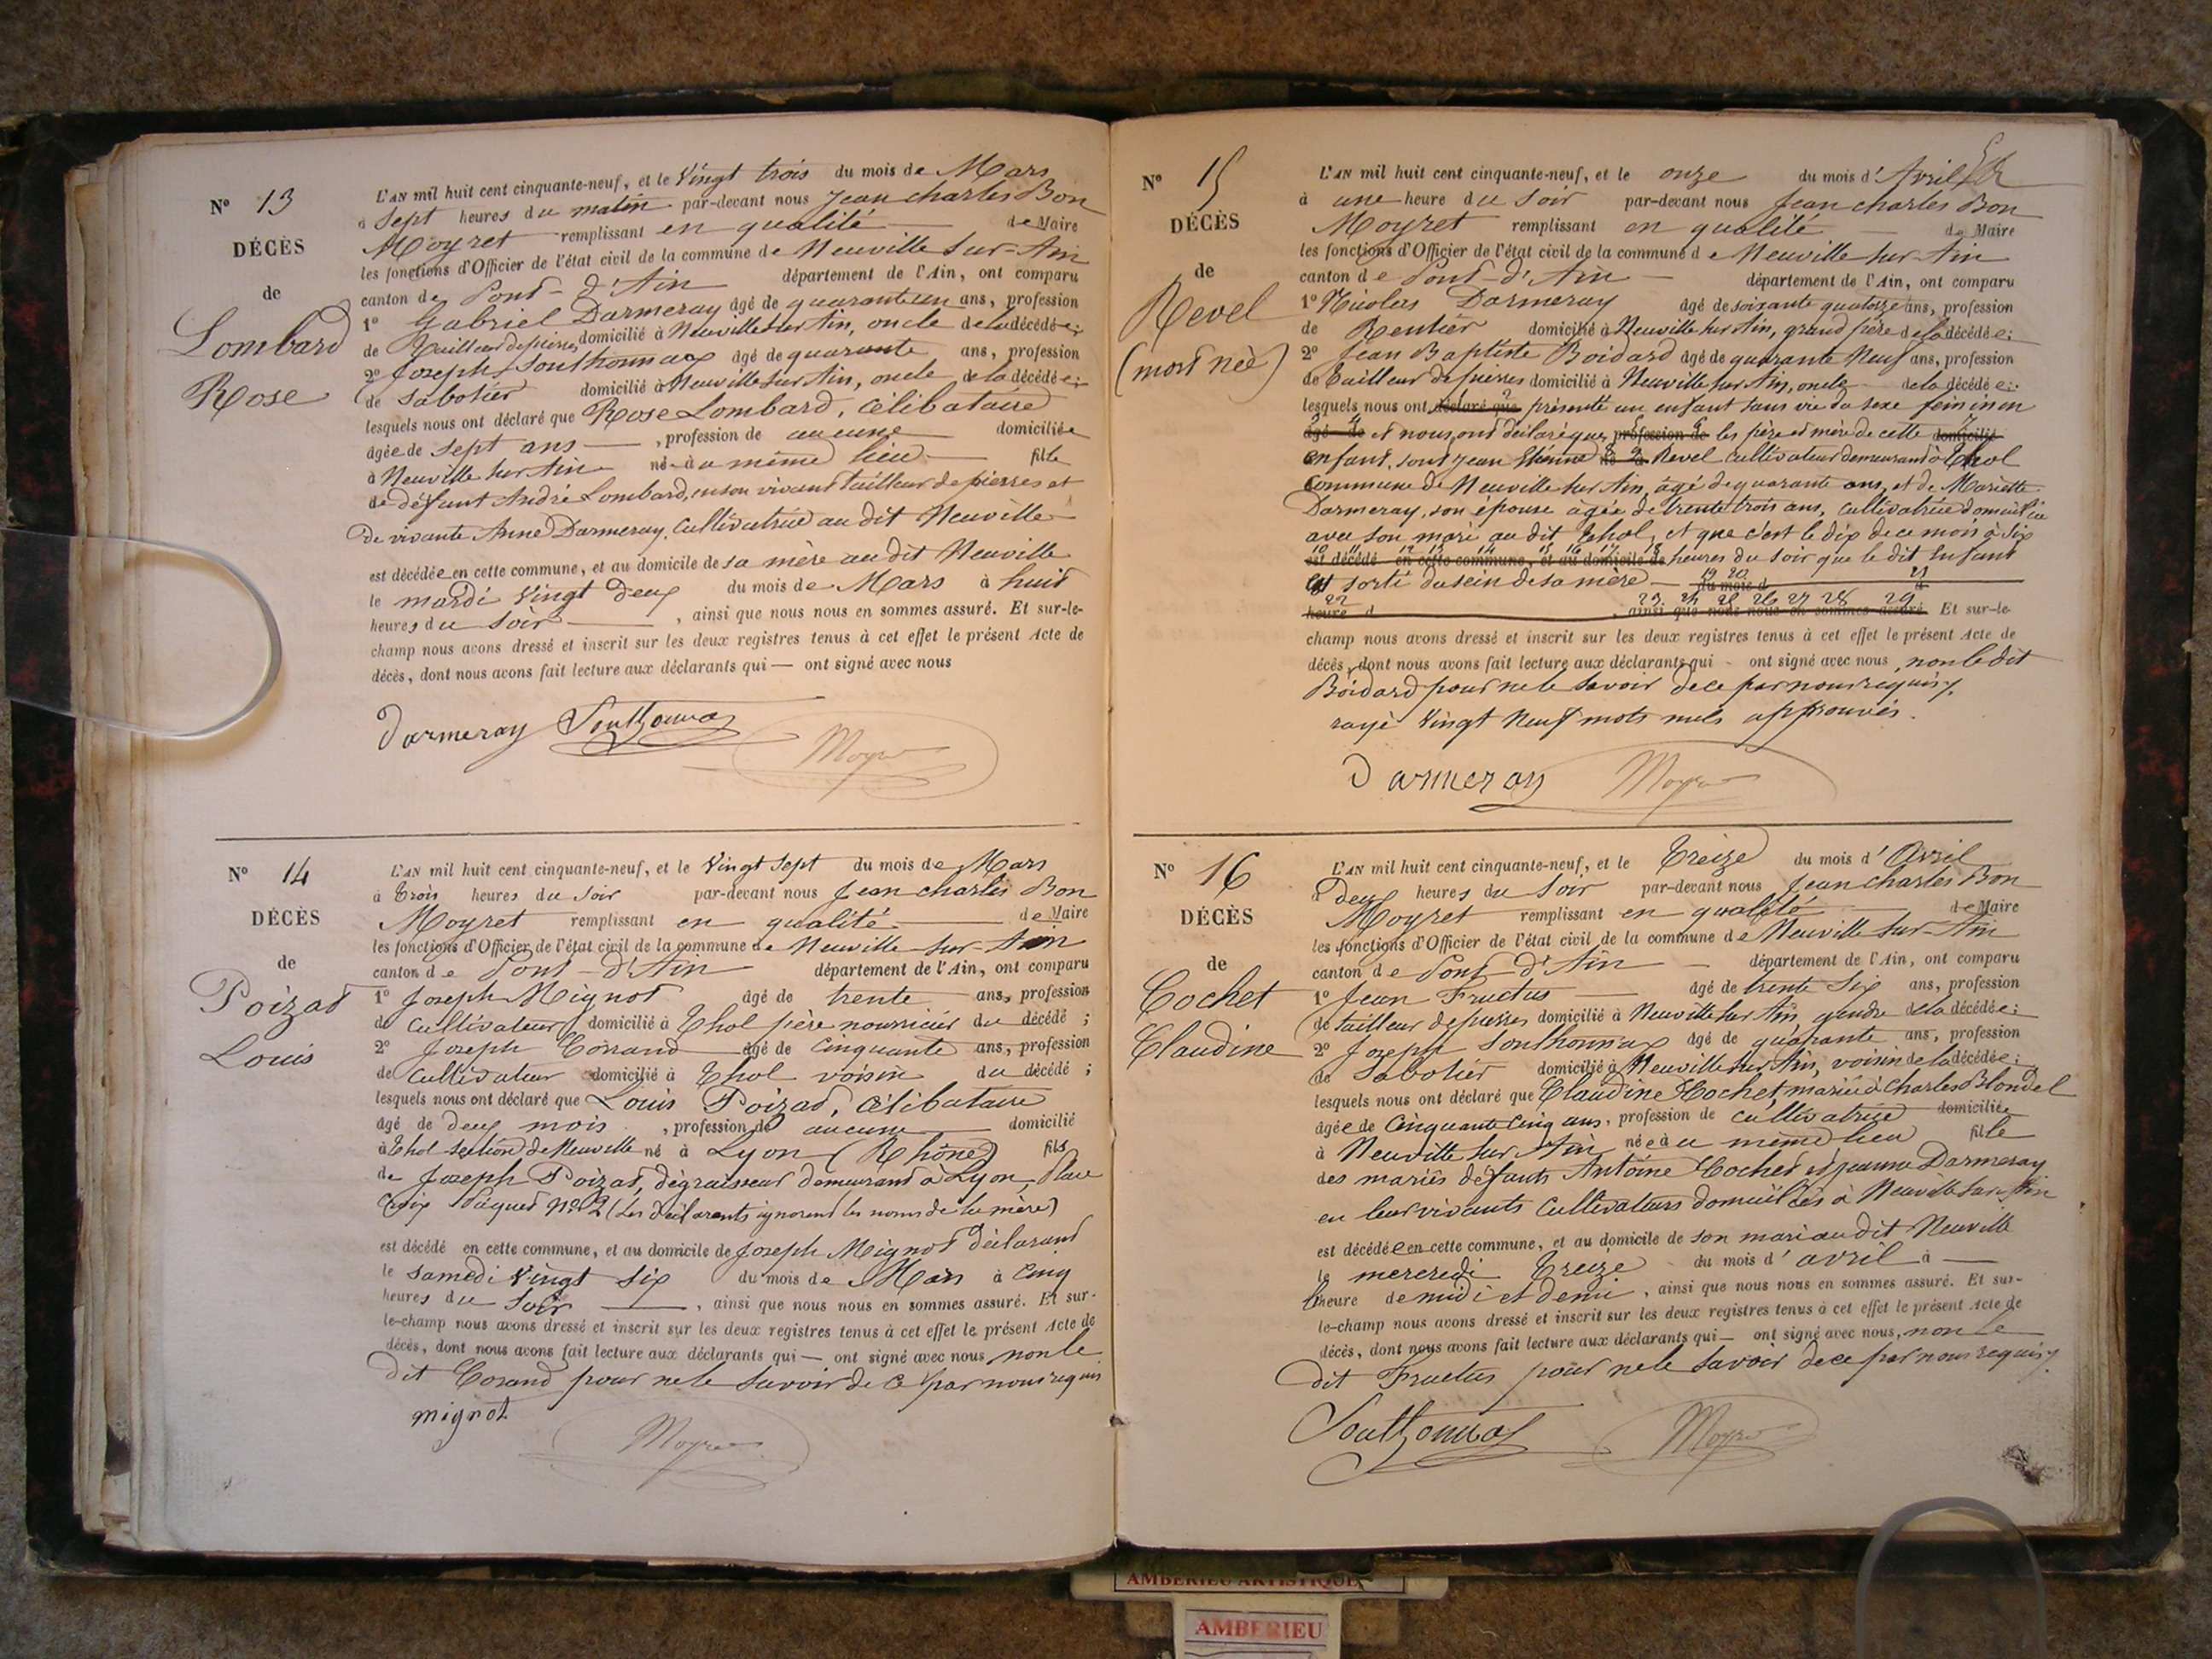 N° 13
DÉCÈS
de
Lombard
Rose
L'AN mil huit cent cinquante-neuf, et le Vingt trois du mois de Mars
à Sept heures du matin par-devant nous Jean charles Bon
Moyret remplissant en qualité de Maire
les fonctions d'Officier de l'état civil de la commune de Neuville sur-Ain
canton de Pont-d'Ain département de l'Ain, ont comparu
1° Gabriel Darmeray âgé de quarante un ans, profession
de Tailleur de pierres domicilié à Neuville sur Ain, oncle de la décédée;
2° Joseph Southonnax âgé de quarante ans, profession
de Sabotier domicilié à Neuville sur Ain, oncle de la décédée;
lesquels nous ont déclaré que Rose Lombard, célibataire
âgée de sept ans , profession de aucune domiciliée
à Neuville sur Ain née au même lieu fille
de défunt André Lombard, en son vivant tailleur de pierres et
De vivante Anne Darmeray, Cultivatrice au dit Neuville
est décédée en cette commune, et au domicile de sa mère au dit Neuville
le mardi Vingt Deux du mois de Mars à huit
heures du Soir , ainsi que nous nous en sommes assuré. Et sur-le-
champ nous avons dressé et inscrit sur les deux registres tenus à cet effet le présent Acte de
décès, dont nous avons fait lecture aux déclarants qui — ont signé avec nous
Darmeray Southonnax Moyret
N° 14
DÉCÈS
de
Poizat
Louis
L'AN mil huit cent cinquante-neuf, et le Vingt Sept du mois de Mars
à Trois heures du Soir par-devant nous Jean charles Bon
Moyret remplissant en qualité de Maire
les fonctions d'Officier de l'état civil de la commune de Neuville sur-Ain
canton de Pont-d'Ain département de l'Ain, ont comparu
1° Joseph Mignot âgé de trente ans, profession
de Cultivateur domicilié à Thol père nourricier du décédé ;
2° Joseph Corand âgé de Cinquante ans, profession
de Cultivateur domicilié à Thol voisin du décédé ;
lesquels nous ont déclaré que Louis Poizat, célibataire
âgé de deux mois , profession de aucune domicilié
à Thol section de Neuville né à Lyon (Rhône) fils
de Joseph Poizat, dégraisseur demeurant à Lyon, Place
Croix Paquet N° 2 (Les déclarants ignorent les noms de la mère)
est décédé en cette commune, et au domicile de Joseph Mignot déclarant
le samedi Vingt Six du mois de Mars à Cinq
heures du Soir , ainsi que nous nous en sommes assuré. Et sur-
le-champ nous avons dressé et inscrit sur les deux registres tenus à cet effet le présent Acte de
décès, dont nous avons fait lecture aux déclarants qui — ont signé avec nous non le
dit Corand pour ne le Savoir de ce par nous requis
mignot Moyret
N° 15
DÉCÈS
de
Revel
(mort née)
L'AN mil huit cent cinquante-neuf, et le onze du mois d'Avril
à une heure du Soir par-devant nous Jean charles Bon
Moyret remplissant en qualité de Maire
les fonctions d'Officier de l'état civil de la commune de Neuville sur-Ain
canton de Pont-d'Ain département de l'Ain, ont comparu
1° Nicolas Darmeray âgé de soixante quatorze ans, profession
de Rentier domicilié à Neuville sur Ain, grand père de la décédée;
2° Jean Baptiste Boidard âgé de quarante Neuf ans, profession
de Tailleur de pierres domicilié à Neuville sur Ain, oncle de la décédée;
lesquels nous ont déclaré que présenté un enfant sans vie du sexe féminin
âgé de et nous ont déclaré que profession de les père et mère de cette domicilié
enfant, sont Jean Etienne né à Revel Cultivateur demeurant à Thol
Commune de Neuville sur Ain, âgé de quarante ans, et de Mariette
Darmeray, son épouse agée de trente trois ans, Cultivatrice domiciliée
avec son mari au dit Thol, et que c'est le dix de ce mois à Six
10 11 12 13 14 15 16 17 18
est décédé en cette commune, et au domicile de heures du soir que le dit Enfant
est sorti du sein de sa mère 19 20 du mois d 21 à
22 23 24 25 26 27 28 29
heure d , ainsi que nous nous en sommes assuré. Et sur-le-
champ nous avons dressé et inscrit sur les deux registres tenus à cet effet le présent Acte de
décès, dont nous avons fait lecture aux déclarants qui - ont signé avec nous, non le dit
Boidard pour ne le Savoir de ce par nous requis.
rayé Vingt Neuf mots nuls approuvés.
Darmeray Moyret
N° 16
DÉCÈS
de
Cochet
Claudine
L'AN mil huit cent cinquante-neuf, et le Treize du mois d'Avril
à Deux heures du Soir par-devant nous Jean charles Bon
Moyret remplissant en qualité de Maire
les fonctions d'Officier de l'état civil de la commune de Neuville sur-Ain
canton de Pont-d'Ain département de l'Ain, ont comparu
1° Jean Fructus âgé de trente Six ans, profession
de tailleur de pierres domicilié à Neuville sur Ain gendre de la décédée;
2° Joseph Southonnax âgé de quarante ans, profession
de Sabotier domicilié à Neuville sur Ain, voisin de la décédée;
lesquels nous ont déclaré que Claudine Cochet, mariée à Charles Blondel
âgée de Cinquante Cinq ans, profession de cultivatrice domiciliée
à Neuville sur Ain née à ce même lieu fille
des mariés défunts Antoine Cochet et Jeanne Darmeray
en leur vivants Cultivateurs domiciliés à Neuville sur Ain
est décédée en cette commune, et au domicile de son mari au dit Neuville
le mercredi Treize du mois d'avril à
l'heure de midi et demi , ainsi que nous nous en sommes assuré. Et sur-
le-champ nous avons dressé et inscrit sur les deux registres tenus à cet effet le présent Acte de
décès, dont nous avons fait lecture aux déclarants qui — ont signé avec nous, non le
dit Fructus pour ne le savoir de ce par nous requis.
Southonnax Moyret
AMBERIEU ARTISTIQUE
AMBERIEU